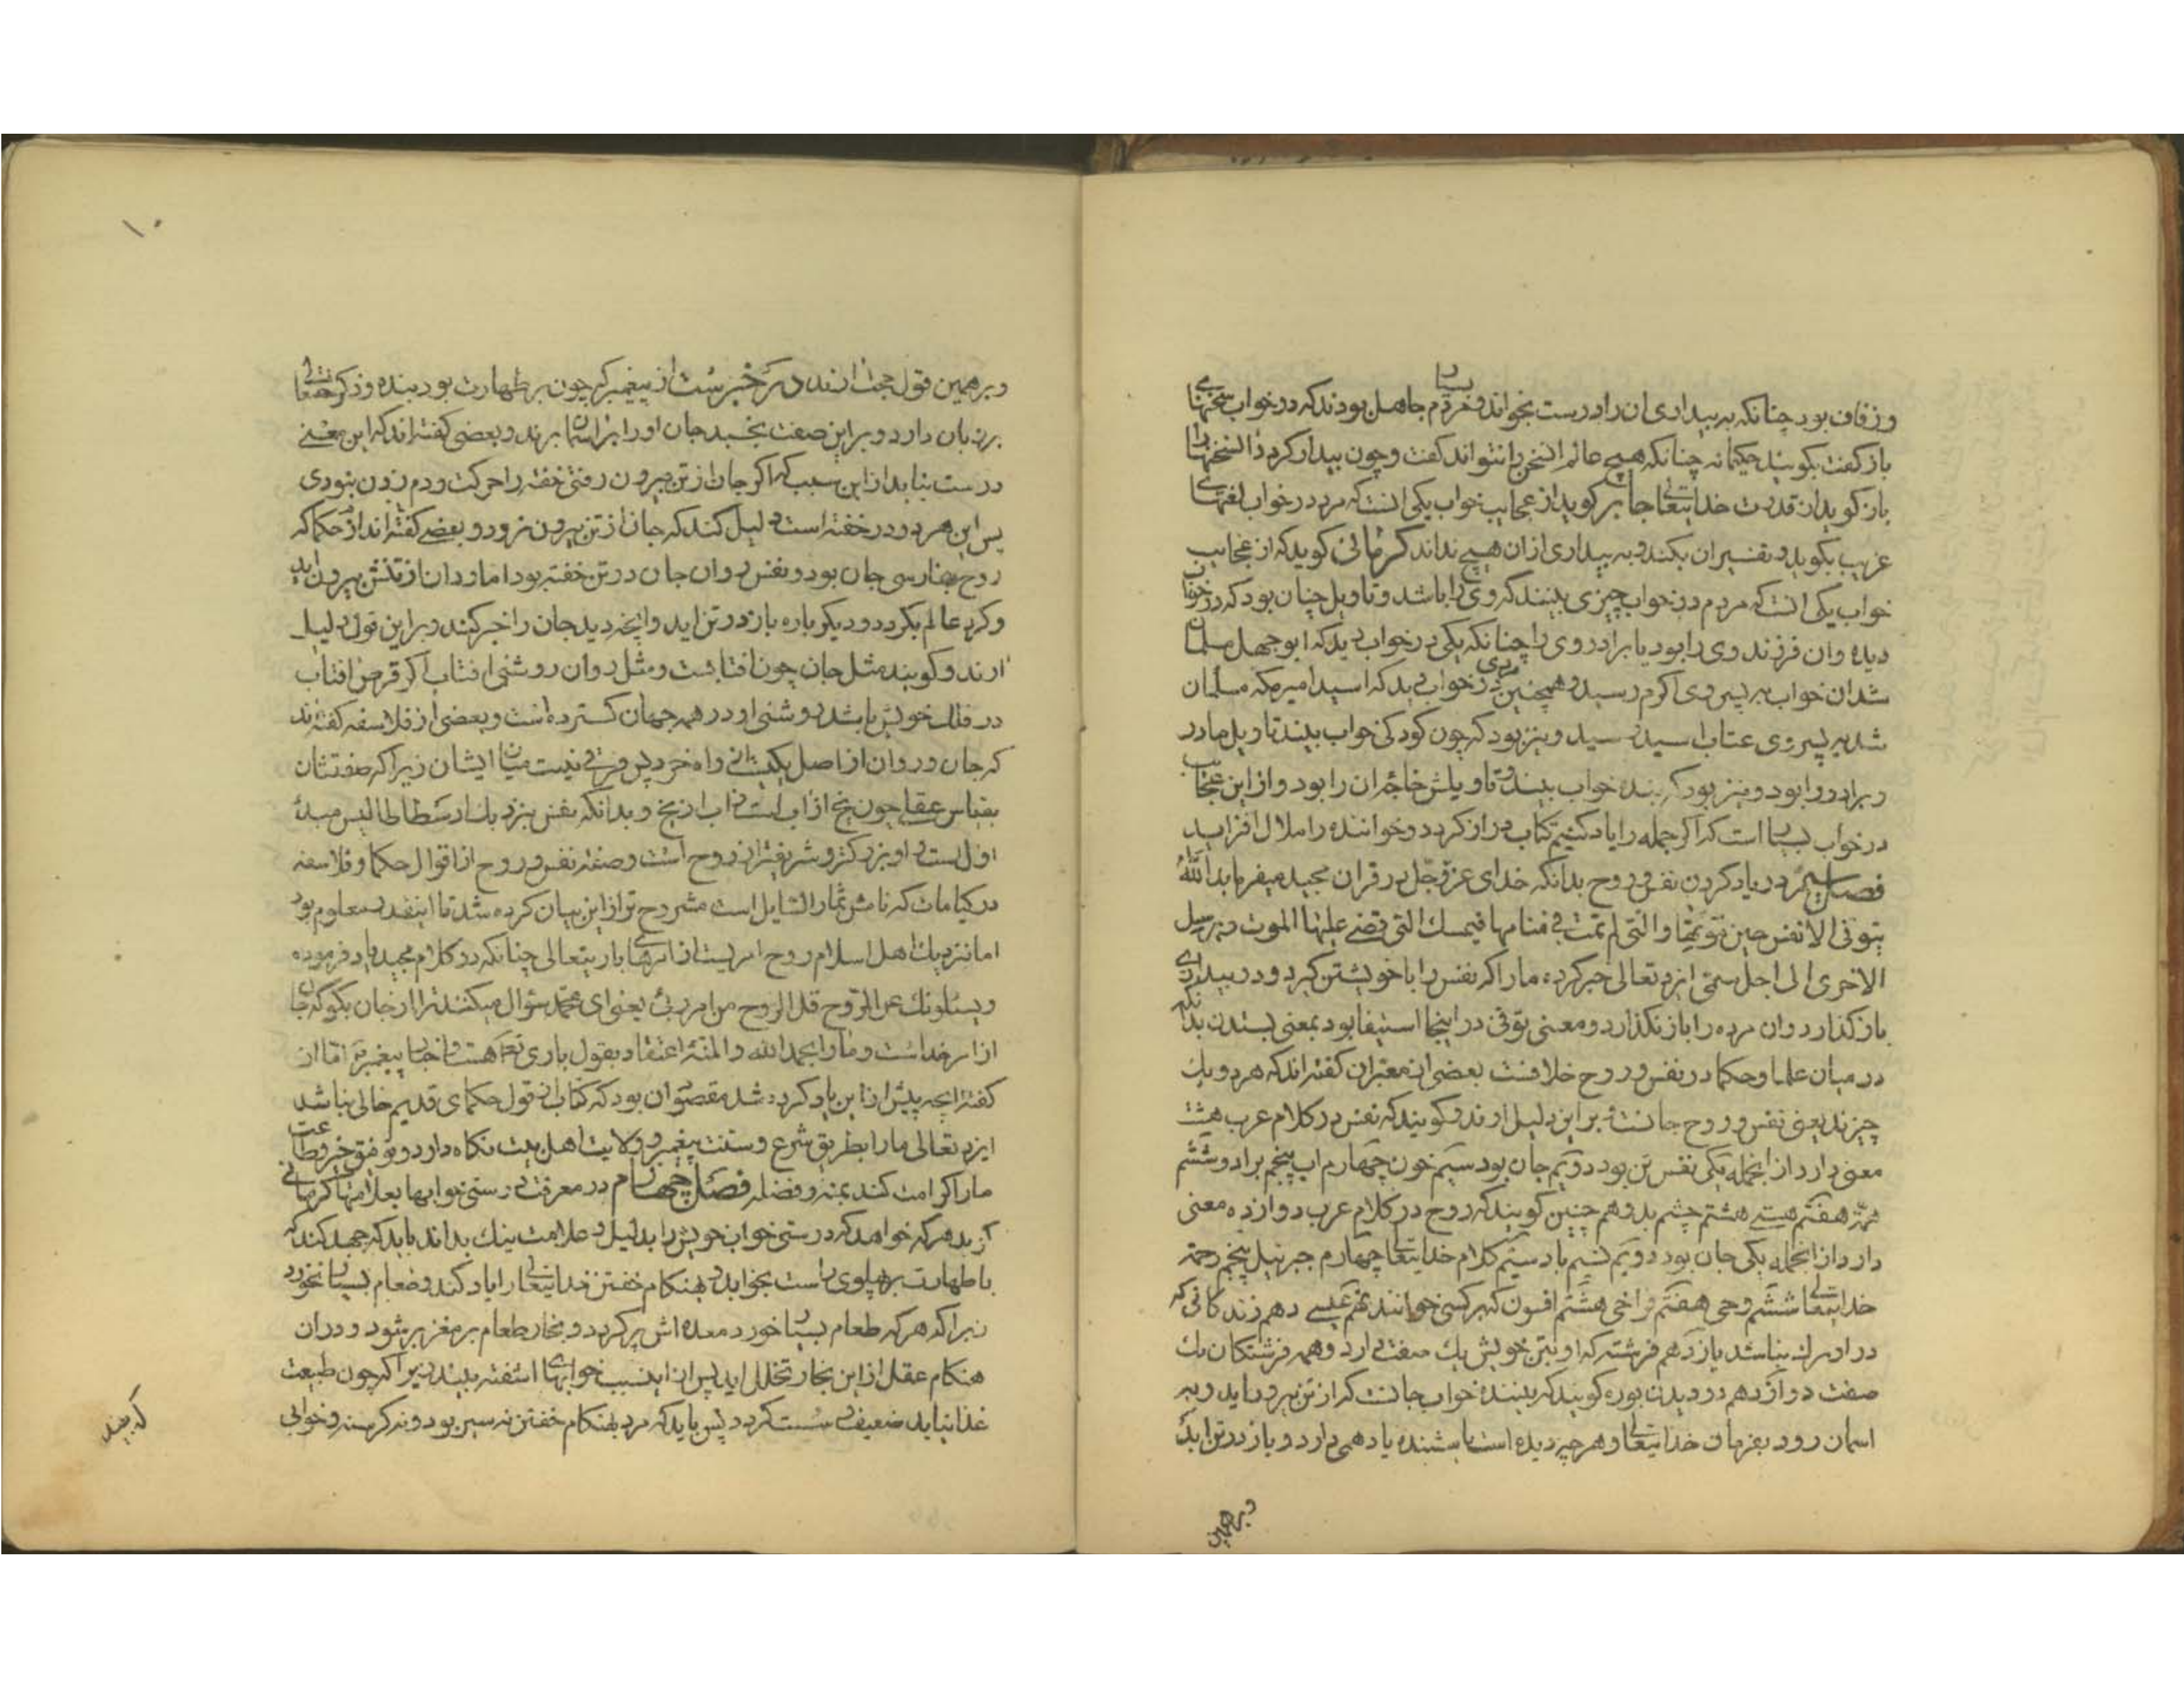 وزفاف بود چنانکه به بیداری ان را درست نخواند و مردم جاهل بودند که در خواب سخنهای
بسیار
باز کفت بکویند حکیمانه چنانکه هیچ عالم انسخن را نتواند کفت و چون بیدار کردد انسخنها را
باز کوید از قدرت خدایتعالی جابر کوید از عجایب خواب یکی انست که مرد در خواب لغتهای
غریب بکوید و تفسیر ان بکند و به بیداری ازان هیچ نداند کرمانی کوید که از عجایب
خواب یکی انست که مردم در خواب چیزی بینند که وی را باشد و تاویل چنان بود که در خواب
دیده وان فرزند وی را بود یا برادر وی را چنانکه یکی در خواب دید که ابوجهل مسلمان
شد ان خواب به پسر وی اکرم رسید و همچنین مردی در خواب دید که اسید امیر مکه مسلمان
شد به پسر وی عتاب اسید رسید و نیز بود که چون کودکی خواب بیند تاویل مادر
و برادر را بود و نیز بود که بنده خواب بیند و تاویلش خواجه ان را بود و از این عجایب
در خواب بسیار است که اکر جمله را یاد کنیم کتاب دراز کردد و خواننده را ملال افزاید
فصل سیم در یاد کردن نفس و روح بدانکه خدای عز و جل در قران مجید میفرماید الله
یتوفی الانفس حین موتها والتی لم تمت فی منامها فیمسك التی قضی علیها الموت و یرسل
الاخری الی اجل مسمی ایزد تعالی خبر کرده ما را که نفس را با خویشتن کیرد و در بیداری
باز کذارد وان مرده را باز نکذارد و معنی توفی در اینجا استیفا بود بمعنی بستدن بدانکه
در میان علما و حکما در نفس و روح خلافست بعضی از معبران کفته اند که هر دو یك
چیزند یعنی نفس و روح جانست و بر این دلیل ارند و کویند که نفس در کلام عرب هشت
معنی دارد از انجمله یکی نفس تن بود دویم جان بود سیم خون چهارم اب پنجم برادر و ششم
همة هفتم هستی هشتم چشم بد و هم چنین کویند که روح در کلام عرب دوازده معنی
دارد از انجمله یکی جان بود دویم نسیم باد سیم کلام خدایتعالی چهارم جبرئیل پنجم رحمة
خدایتعالی ششم وحی هفتم فراخی هشتم افسون که بر کسی خوانند نهم عیسی دهم زندکانی که
در او مرك نباشد یازدهم فرشته که او بتن خویش یك صف بر ارد و همه فرشتکان یك
صفت دوازدهم در دیدن بوده کویند که بیننده خواب جانست که از تن بیرون اید و بر
اسمان رود بفرمان خدایتعالی و هر چه دیده است یا شنیده یاد همی دارد و باز در تن اید
وبرهمین
۱۰
وبرهمین قول حجت ارند در خبرست از پیغمبر که چون بر طهارت بود بنده و ذکر حقتعالی
بر زبان دارد و بر این صفت بخسبد جان او را بر اسمان برند و بعضی کفته اند که این معنی
درست نیاید از این سبب که اکر جان از تن بیرون رفتی خفته را حرکت و دم زدن نبودی
پس این هر دو در خفته است دلیل کند که جان از تن بیرون نرود و بعضی کفته اند از حکما که
روح بفارسی جان بود و نفس روان جان در تن خفته بود اما روان از تنش بیرون اید
و کرد عالم بکردد و دیکر باره باز در تن اید و انچه دید جان را خبر کند و بر این قول دلیل
ارند و کویند مثل جان چون افتابست و مثل روان روشنی افتاب اکر قرص افتاب
در فلك خویش باشد روشنی او در همه جهان کسترده است و بعضی از فلاسفه کفته اند
که جان و روان از اصل یکیست فرقی نیست میان ایشان زیرا که صفتشان
بقیاس عقل چون یخ از اب است و اب از یخ و بدانکه نفس بنزدیك ارسطاطالیس مبدأ
اول است و او بزرکتر و شریفتر از روح است و صفت نفس و روح از اقوال حکما و فلاسفه
در کتاب ما که نامش ثمار المسایل است مشروح تر از این بیان کرده شد تا اینقدر معلوم بود
اما نزدیك اهل اسلام روح امریست از امرهای باریتعالی چنانکه در کلام مجید یاد فرموده
ویسئلونك عن الروح قل الروح من امر ربی یعنی ای محمد سؤال میکنند ترا از جان بکو که جان
از امر خداست و ما را بحمد الله والمنه اعتقاد بقول باری تعالی هست و اخبار پیغمبر نیز اما از
کفته انچه پیش از این یاد کرده شد مقصود ان بود که کتاب از قول حکمای قدیم خالی نباشد
ایزد تعالی ما را بطریق شرع و سنت پیغمبر و ولایت اهل بیت نکاه دارد و توفیق خیر و طاعت
ما را کرامت کند بمنه و فضله فصل چهارم در معرفت درستی خوابها بعلامتها کرمانی
کوید هر که خواهد که درستی خواب خویش را بدلیل و علامت نیك بداند باید که جهد کند که
با طهارت بر پهلوی راست بخوابد و بهنکام خفتن خدایتعالی را یاد کند و طعام بسیار نخورد
زیرا که هر که طعام بسیار خورد معده اش پر کردد و بخار طعام بر مغز بر شود و در ان
هنکام عقل از این بخار تخلل اید پس از اینسبب خوابهای اشفته بیند زیرا که چون طبیعت
غذا نیابد ضعیف و سست کردد پس باید که مرد بهنکام خفتن نه سیر بود و نه کرسنه و خوابی
که بیند